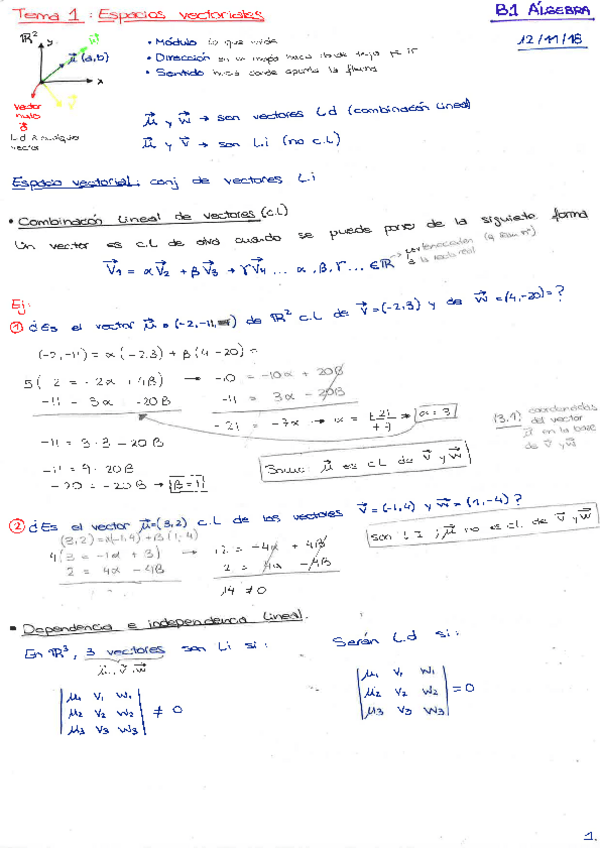 Tema 1: Espacios vectoriales
B1 ÁLGEBRA
12/11/18
ℝ² y
w⃗
μ⃗ (a,b)
x
v⃗
vector nulo
0⃗
L.d a cualquier vector
• Módulo lo que mide
• Dirección
• Sentido hacia donde apunta la flecha
μ⃗ y w⃗ → son vectores L.d (combinación lineal)
μ⃗ y v⃗ → son L.i (no c.L)
Espacio vectorial: conj de vectores L.i
• Combinación lineal de vectores (c.L)
Un vector es c.L de otro cuando se puede poner de la siguiente forma
V⃗₁ = αV⃗₂ + βV⃗₃ + γV⃗₄ ... α, β, γ ... ∈ ℝ → a la recta real
Ej:
① ¿Es el vector μ⃗ = (-2,-11) de ℝ² c.L de v⃗ = (-2,3) y de w⃗ = (4,-20) = ?
(-2,-11) = α(-2,3) + β(4-20) =
5( 2 = -2α + 4β) → -10 = -10α + 20β
-11 = 3α - 20β -11 = 3α - 20β
-21 = -7α → α = → α = 3
-11 = 3·3 - 20β
-11 = 9 - 20β
-20 = -20β → β = 1
μ⃗ es c.L de v⃗ y w⃗
(3,1) coordenadas
del vector
μ⃗ en la base
de v⃗ y w⃗
② ¿Es el vector μ⃗ = (3,2) c.L de los vectores v⃗ = (-1,4) y w⃗ = (1,-4) ?
(3,2) = α(-1,4) + β(1,-4)
4(3 = -1α + β) → 12 = -4α + 4β
2 = 4α - 4β 2 = 4α - 4β
14 ≠ 0
Son L.I ; μ⃗ no es c.l. de v⃗ y w⃗
• Dependencia e independencia lineal.
En ℝ³, 3 vectores son L.i si :
μ⃗, v⃗, w⃗
|μ₁ v₁ w₁|
|μ₂ v₂ w₂| ≠ 0
|μ₃ v₃ w₃|
Serán L.d si :
|μ₁ v₁ w₁|
|μ₂ v₂ w₂| = 0
|μ₃ v₃ w₃|
1.